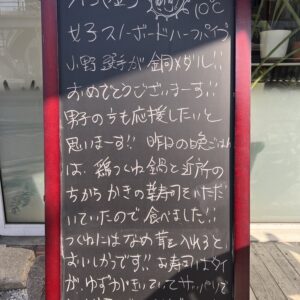 10℃
女子スノーボードハーフパイプ
小野選手が銅メダル!!
おめでとうございまーす!!
男子の方も応援したいと
思いまーす!! 昨日の晩ごはん
は、鶏つくね鍋と近所の
ちからかきの寿司をいただ
いていたので食べました!!
つくねにはなめ茸を入れると
おいしかったです!! お寿司はタイ
が、ゆずがきいていてサッパリと